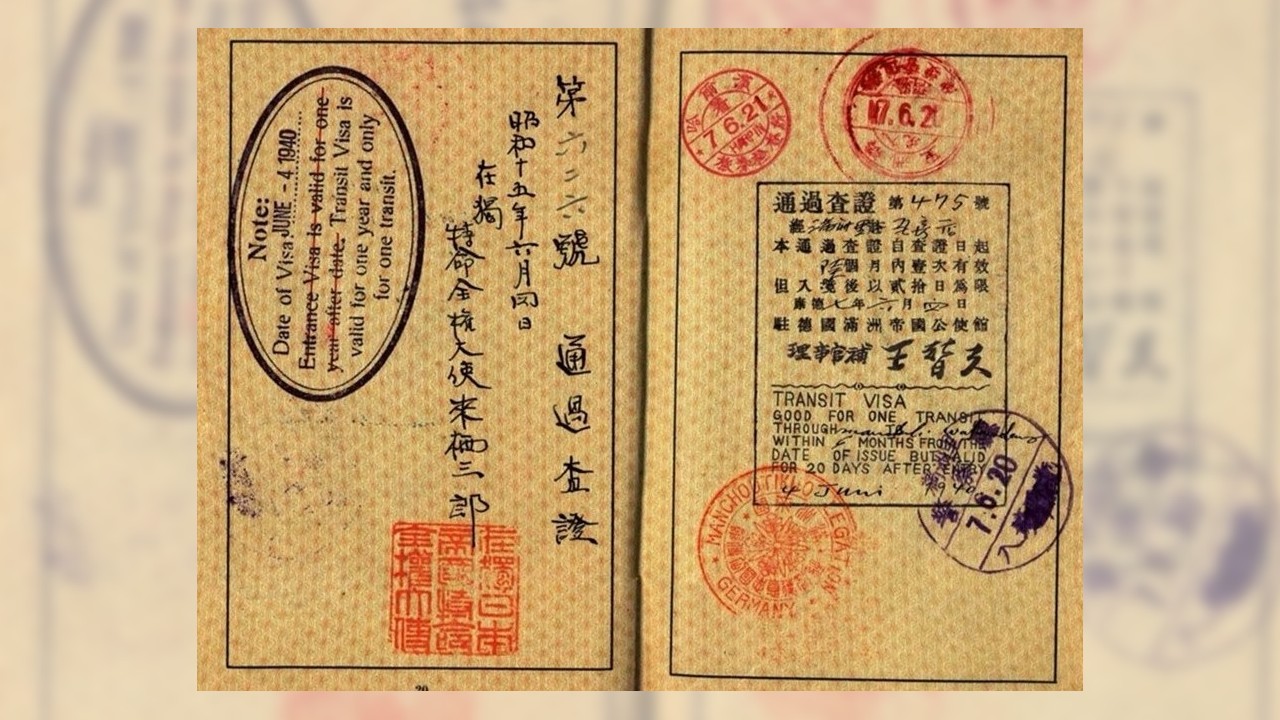 第六二六號 通過査證
昭和十五年六月四日
在獨
特命全權大使来栖三郎
在獨日本
帝國特命
全權大使
Note:
Date of Visa JUNE - 4 1940
Entrance Visa is valid for one
year after date. Transit Visa is
valid for one year and only
for one transit.
20
7.6.21
7.6.21
通過査證 第475號
經滿洲里
本通過査證自査證日起
陸個月內壹次有效
但入境後以貳拾日為限
康德七年六月四日
駐德國滿洲帝國公使館
理事官補 王替夫
TRANSIT VISA
GOOD FOR ONE TRANSIT
THROUGH
WITHIN 6 MONTHS FROM THE
DATE OF ISSUE BUT VALID
FOR 20 DAYS AFTER ENTRY
4 Juni 1940
7.6.20
入
MANCHOUTIKUO LEGATION
GERMANY